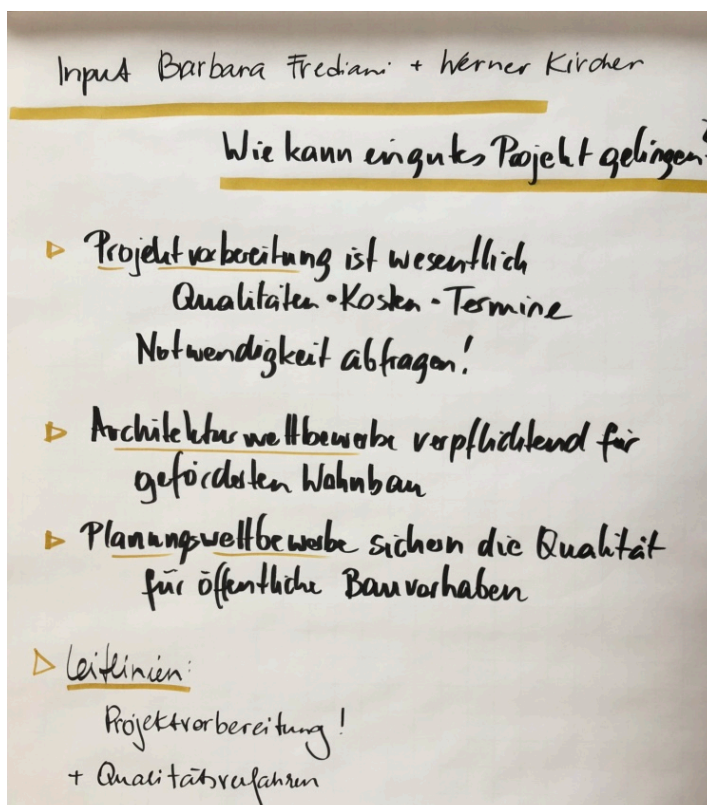 Input Barbara Frediani + Werner Kircher
Wie kann ein gutes Projekt gelingen?
Projektvorbereitung ist wesentlich
Qualitäten • Kosten • Termine
Notwendigkeit abfragen!
Architekturwettbewerbe verpflichtend für
geförderten Wohnbau
Planungswettbewerbe sichern die Qualität
für öffentliche Bauvorhaben
Leitlinien:
Projektvorbereitung!
+ Qualitätsverfahren